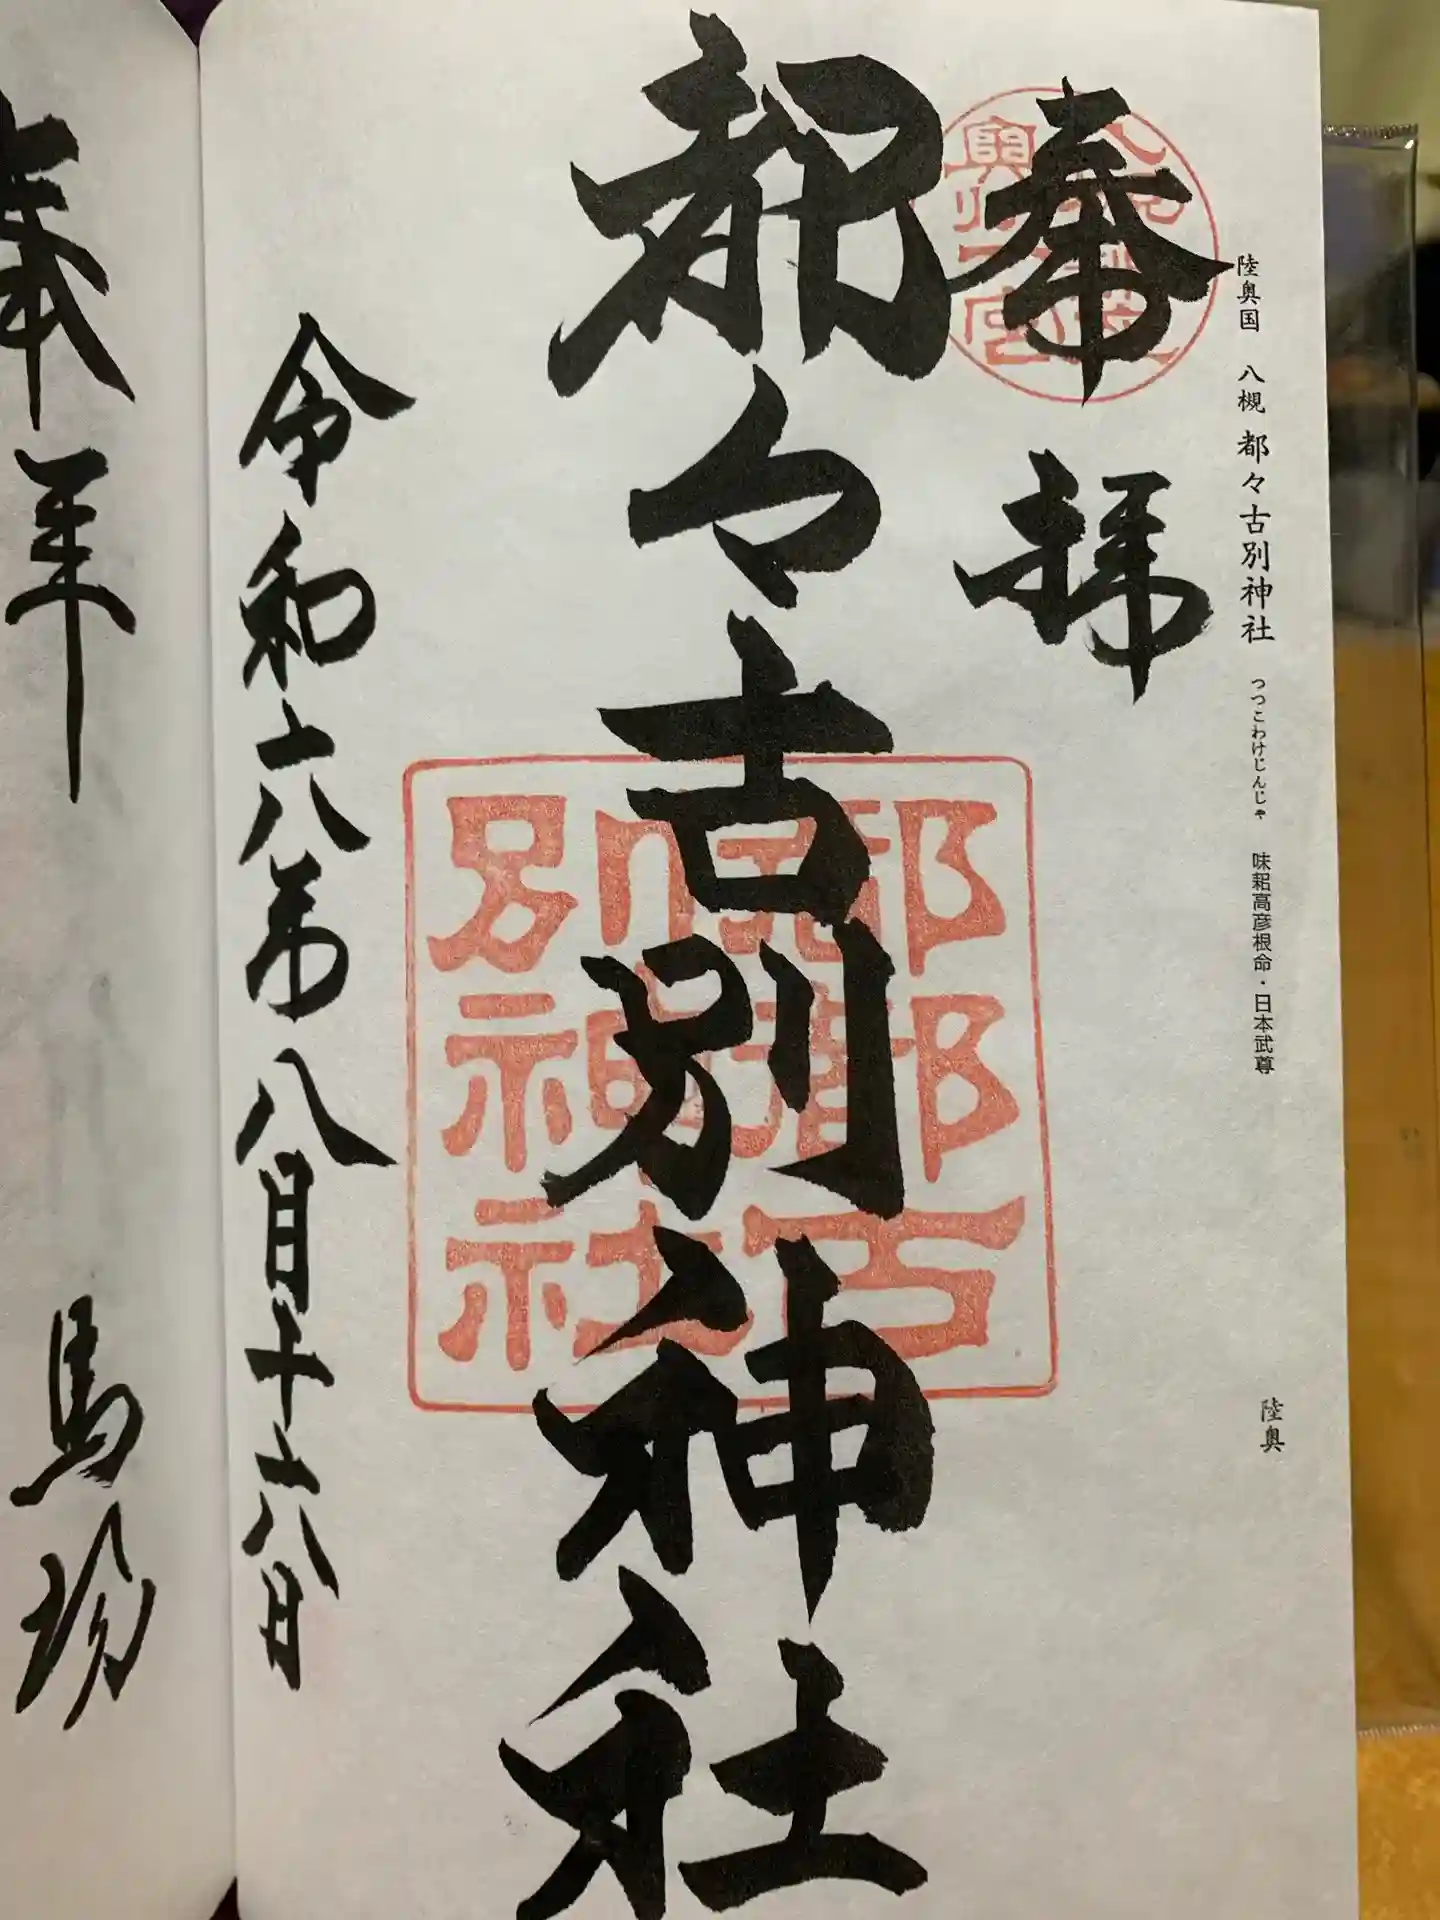 陸奥国 八槻 都々古別神社 つつこわけじんじゃ 味耜高彦根命・日本武尊 陸奥
奉拝
都々古別神社
都都古
別神社
令和六年八月十六日
奉拝
馬場